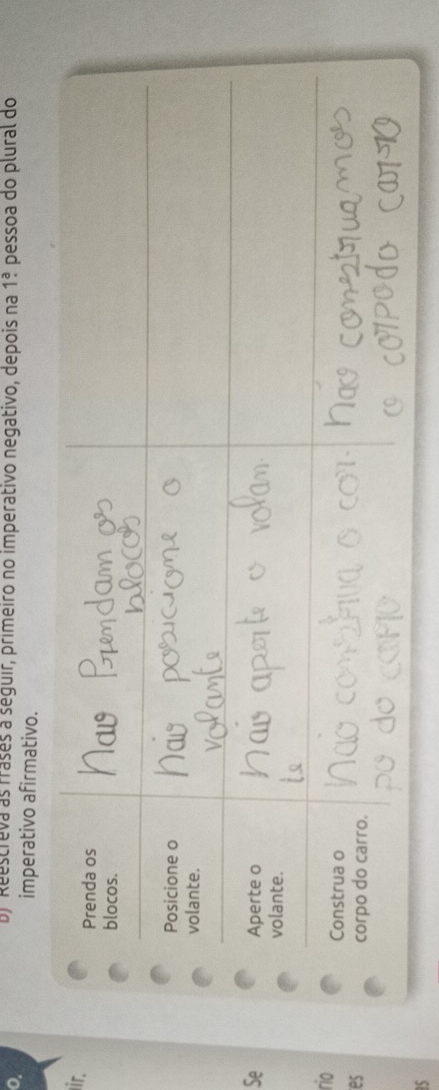 b) Reescreva as frases a seguir, primeiro no imperativo negativo, depois na 1ª pessoa do plural do
imperativo afirmativo.
Prenda os
blocos.
não Prendam os
blocos
Posicione o
volante.
não posicione o
volante
Aperte o
volante.
não aperte o volan-
te
Construa o
corpo do carro.
não construa o cor-
po do carro
não construamos
o corpo do carro
o.
ir.
Se
rio
es
os